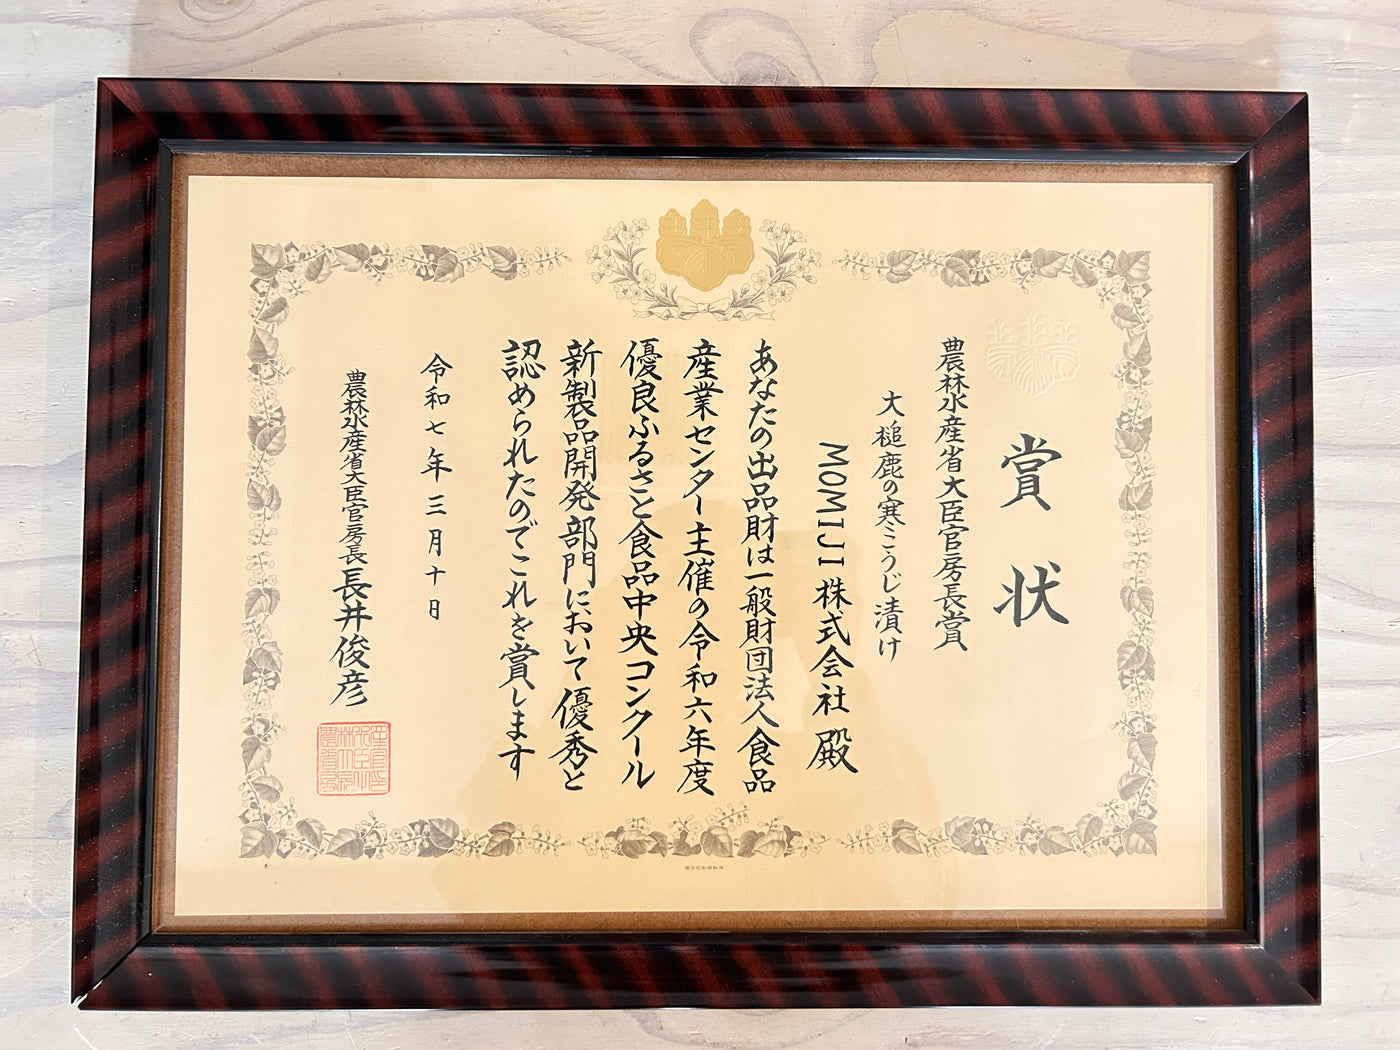 賞状
農林水産省大臣官房長賞
大槌鹿の寒こうじ漬け
MOMIJI株式会社 殿
あなたの出品財は一般財団法人食品
産業センター主催の令和六年度
優良ふるさと食品中央コンクール
新製品開発部門において優秀と
認められたのでこれを賞します
令和七年三月十日
農林水産省大臣官房長 長井俊彦